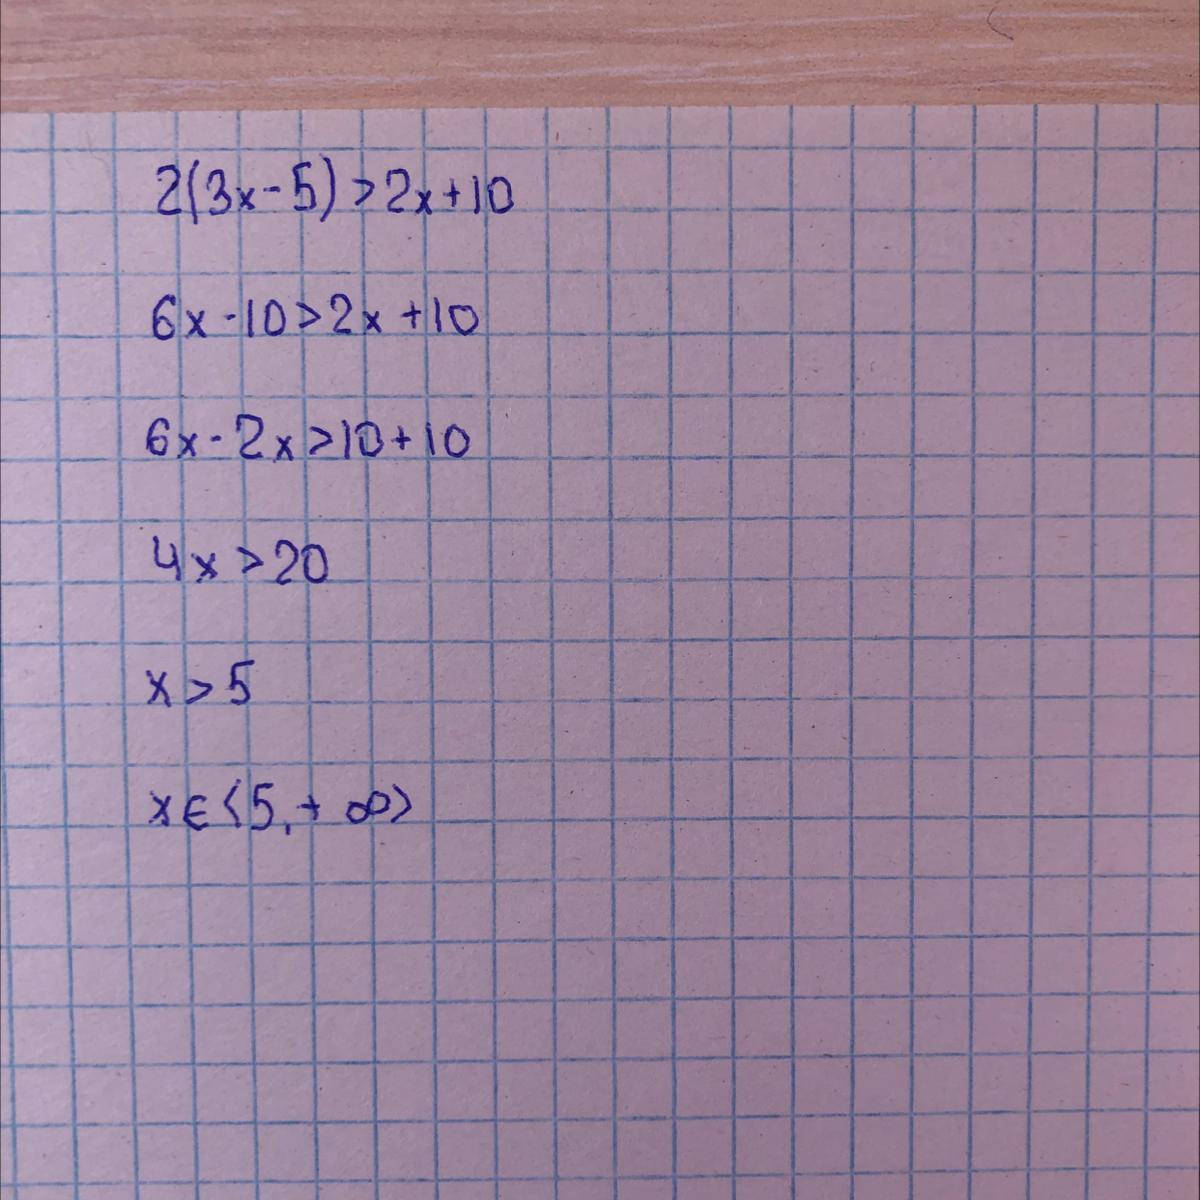 2(3x-5)>2x+10
6x-10>2x+10
6x-2x>10+10
4x>20
x>5
x∈⟨5,+∞⟩